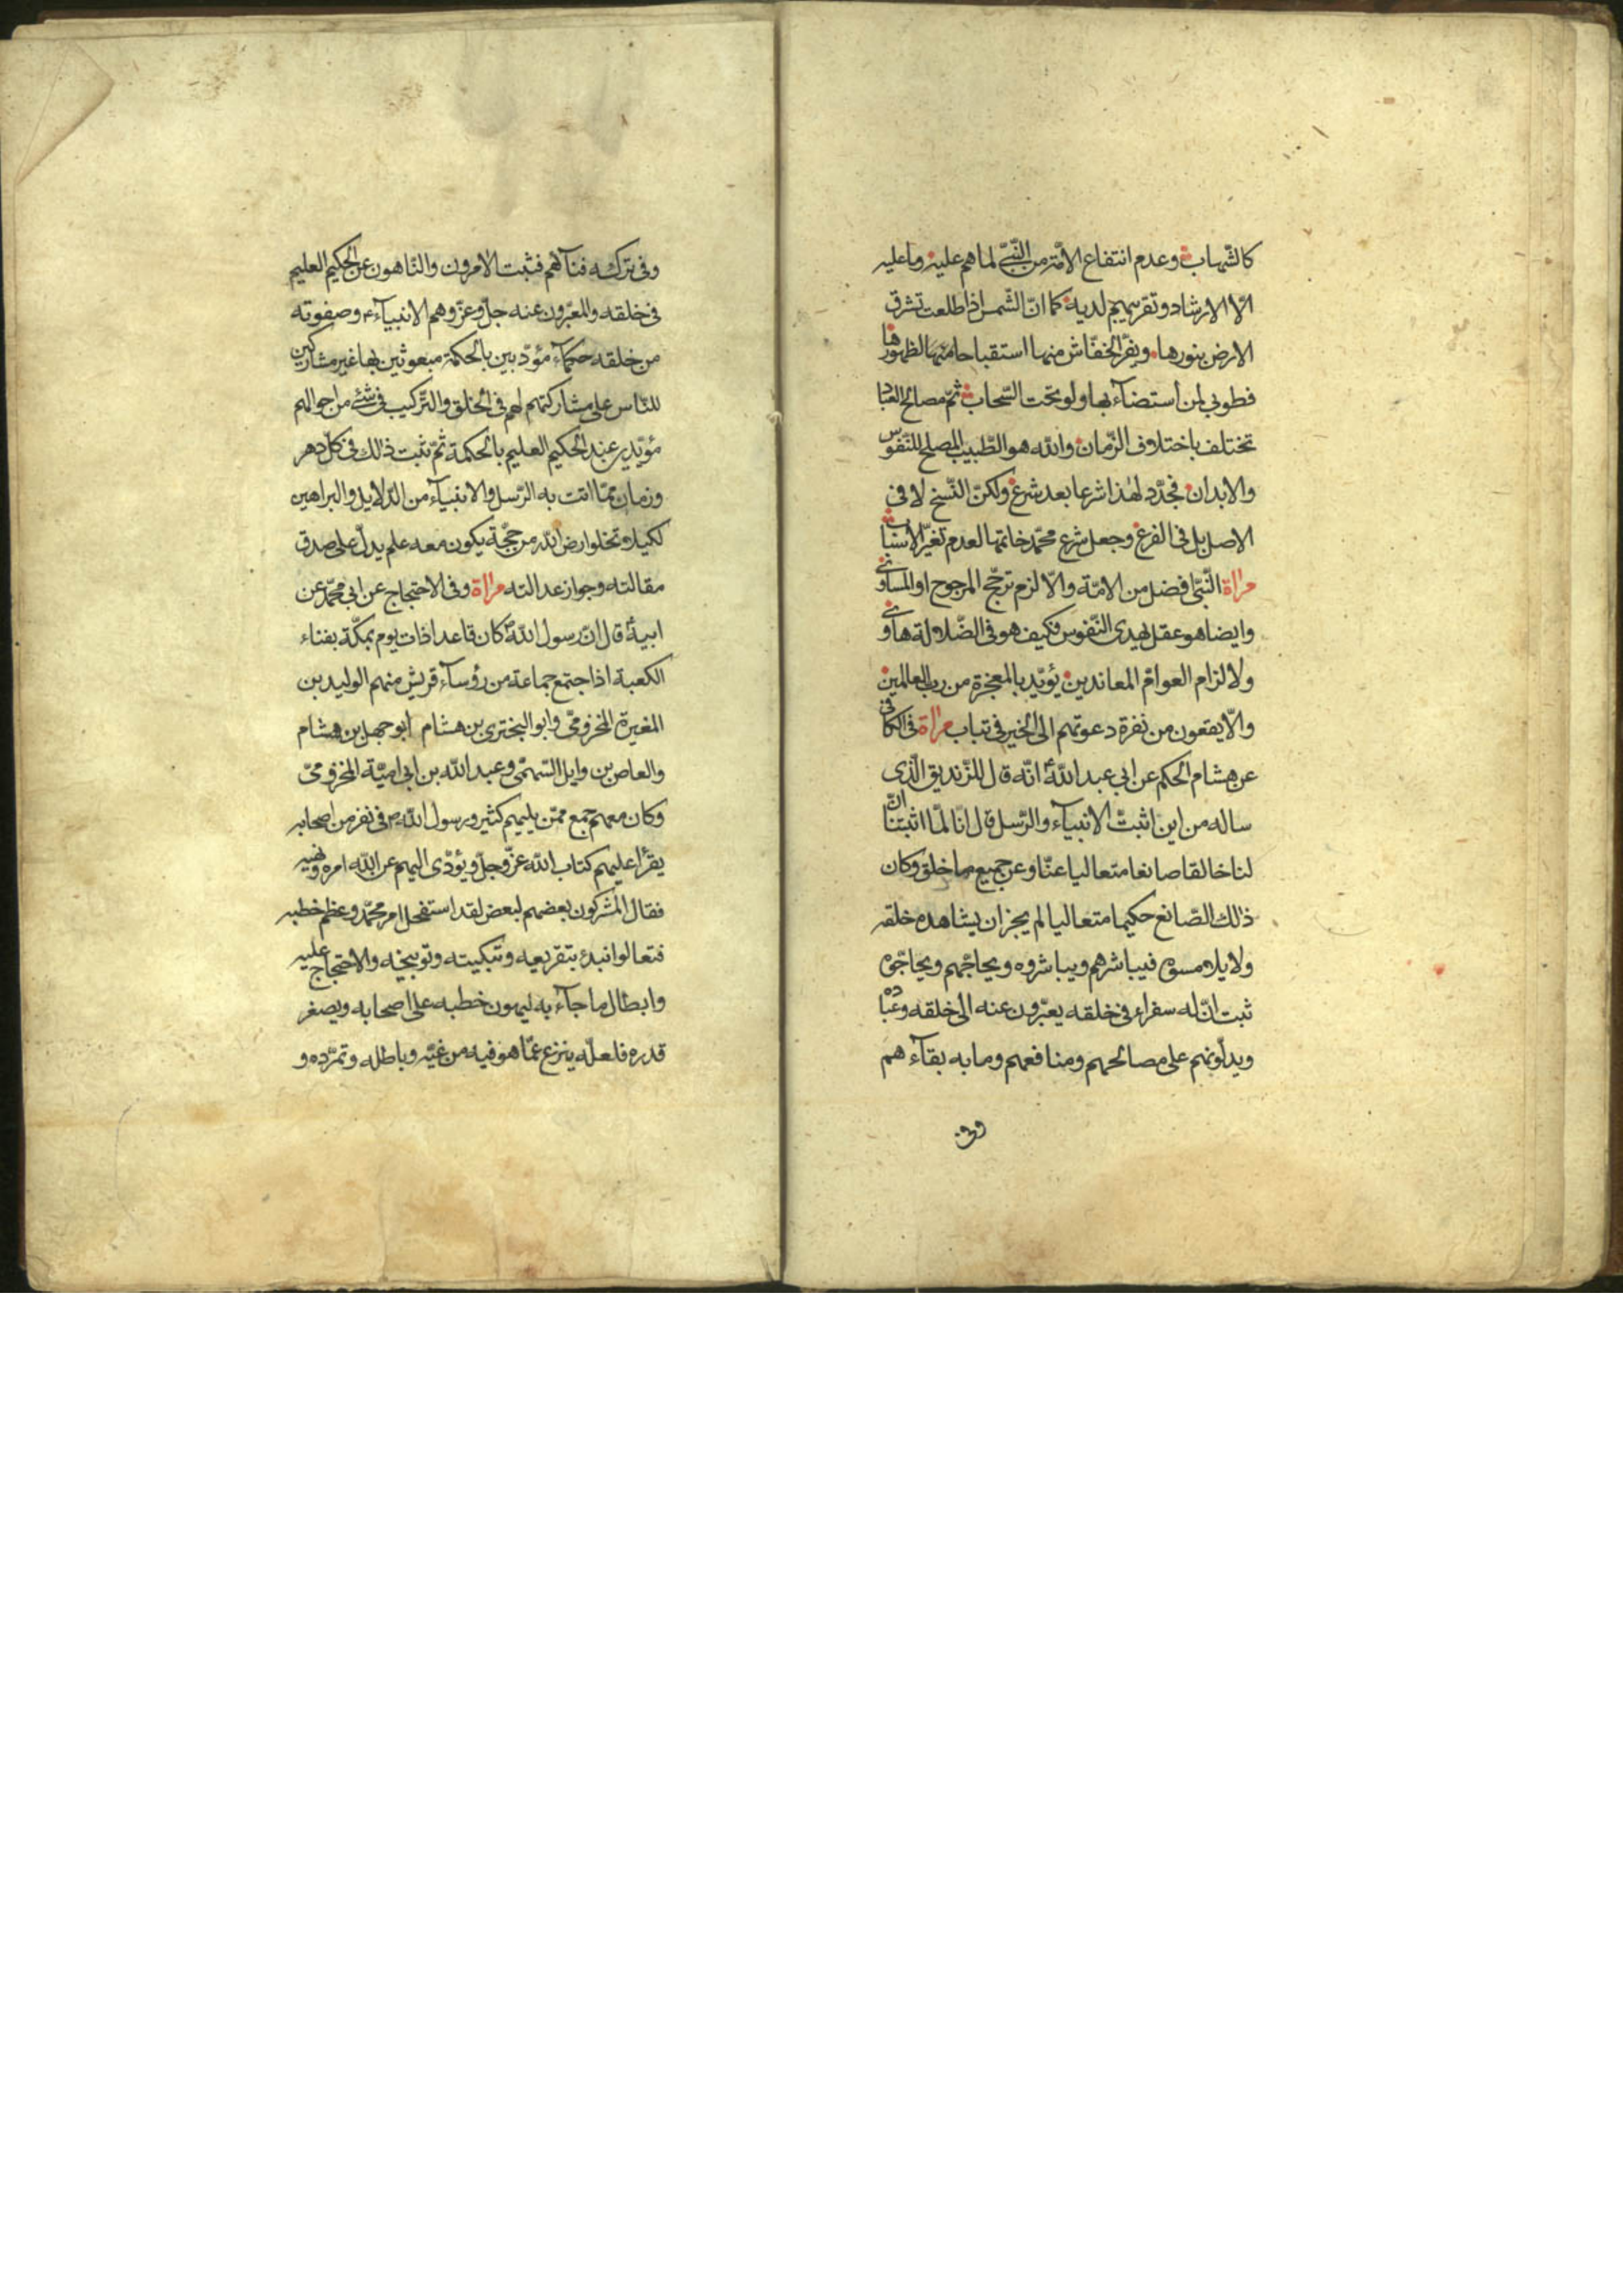 كالشّهاب وعدم انتفاع الامّة من النّبيّ لما هم عليه وما عليه
الّا الارشاد وتقريبهم لديه كما انّ الشّمس اذا طلعت تشرق
الارض بنورها ويفرّ الخفّاش منها استقباحا منها لظهورها
فطوبى لمن استضآء بها ولو تحت السّحاب ثمّ مصالح العباد
تختلف باختلاف الزّمان والله هو الطّبيب المصلح للنّفوس
والابدان فجدّد لهذا شرعا بعد شرع ولكنّ النّسخ لا في
الاصل بل في الفرع وجعل شرع محمّد خاتمها لعدم تغيّر الاسباب
مراة النّبيّ افضل من الامّة والّا لزم ترجّح المرجوح او المساوي
وايضا هو عقل يهدى النّفوس فكيف هو في الضّلالة هاوي
ولالزام العوامّ المعاندين يؤيّد بالمعجزة من ربّ العالمين
والّا يقعون من نفرة دعوتهم الى الخير في تباب مراة في الكافي
عن هشام الحكم عن ابي عبد الله انّه قال للزّنديق الّذي
ساله من اين اثبتّ الانبيآء والرّسل قال انّا لمّا اثبتنا انّ
لنا خالقا صانعا متعاليا عنّا وعن جميع ما خلق وكان
ذلك الصّانع حكيما متعاليا لم يجز ان يشاهده خلقه
ولا يلامسوه فيباشرهم ويباشروه ويحاجّهم ويحاجّوه
ثبت انّ له سفراء في خلقه يعبّرون عنه الى خلقه وعباده
ويدلّونهم على مصالحهم ومنافعهم وما به بقآءهم
وفي
وفي تركه فنآهم فثبت الامرون والنّاهون عن الحكيم العليم
في خلقه والمعبّرون عنه جلّ وعزّ وهم الانبيآء وصفوته
من خلقه حكمآء مؤدّبين بالحكمة مبعوثين بها غير مشاركين
للنّاس على مشاركتهم لهم في الخلق والتّركيب في شئ من احوالهم
مؤيّدين عند الحكيم العليم بالحكمة ثمّ ثبت ذلك في كلّ دهر
وزمان ممّا اتت به الرّسل والانبيآء من الدّلايل والبراهين
لكيلا تخلوا ارض الله من حجّة يكون معه علم يدلّ على صدق
مقالته وجواز عدالته مراة وفي الاحتجاج عن ابي محمّد عن
ابيه قال انّ رسول الله كان قاعدا ذات يوم بمكّة بفناء
الكعبة اذا جتمع جماعة من رؤسآء قريش منهم الوليد بن
المغيرة المخزوميّ وابو البختري بن هشام ابو جهل بن هشام
والعاص بن وايل السّهميّ وعبد الله بن ابي اميّة المخزوميّ
وكان معهم جمع ممّن يليهم كثير ورسول الله ص في نفر من اصحابه
يقرأ عليهم كتاب الله عزّ وجلّ ويؤدّى اليهم عن الله امره ونهيه
فقال المشركون بعضهم لبعض لقد استفحل امر محمّد وعظم خطبه
فتعالوا نبدء بتقريعه وتبكيته وتوبيخه والاحتجاج عليه
وابطال ما جآء به ليهون خطبه على اصحابه ويصغر
قدره فلعلّه ينزع عمّا هو فيه من غيّه وباطله وتمرّده و